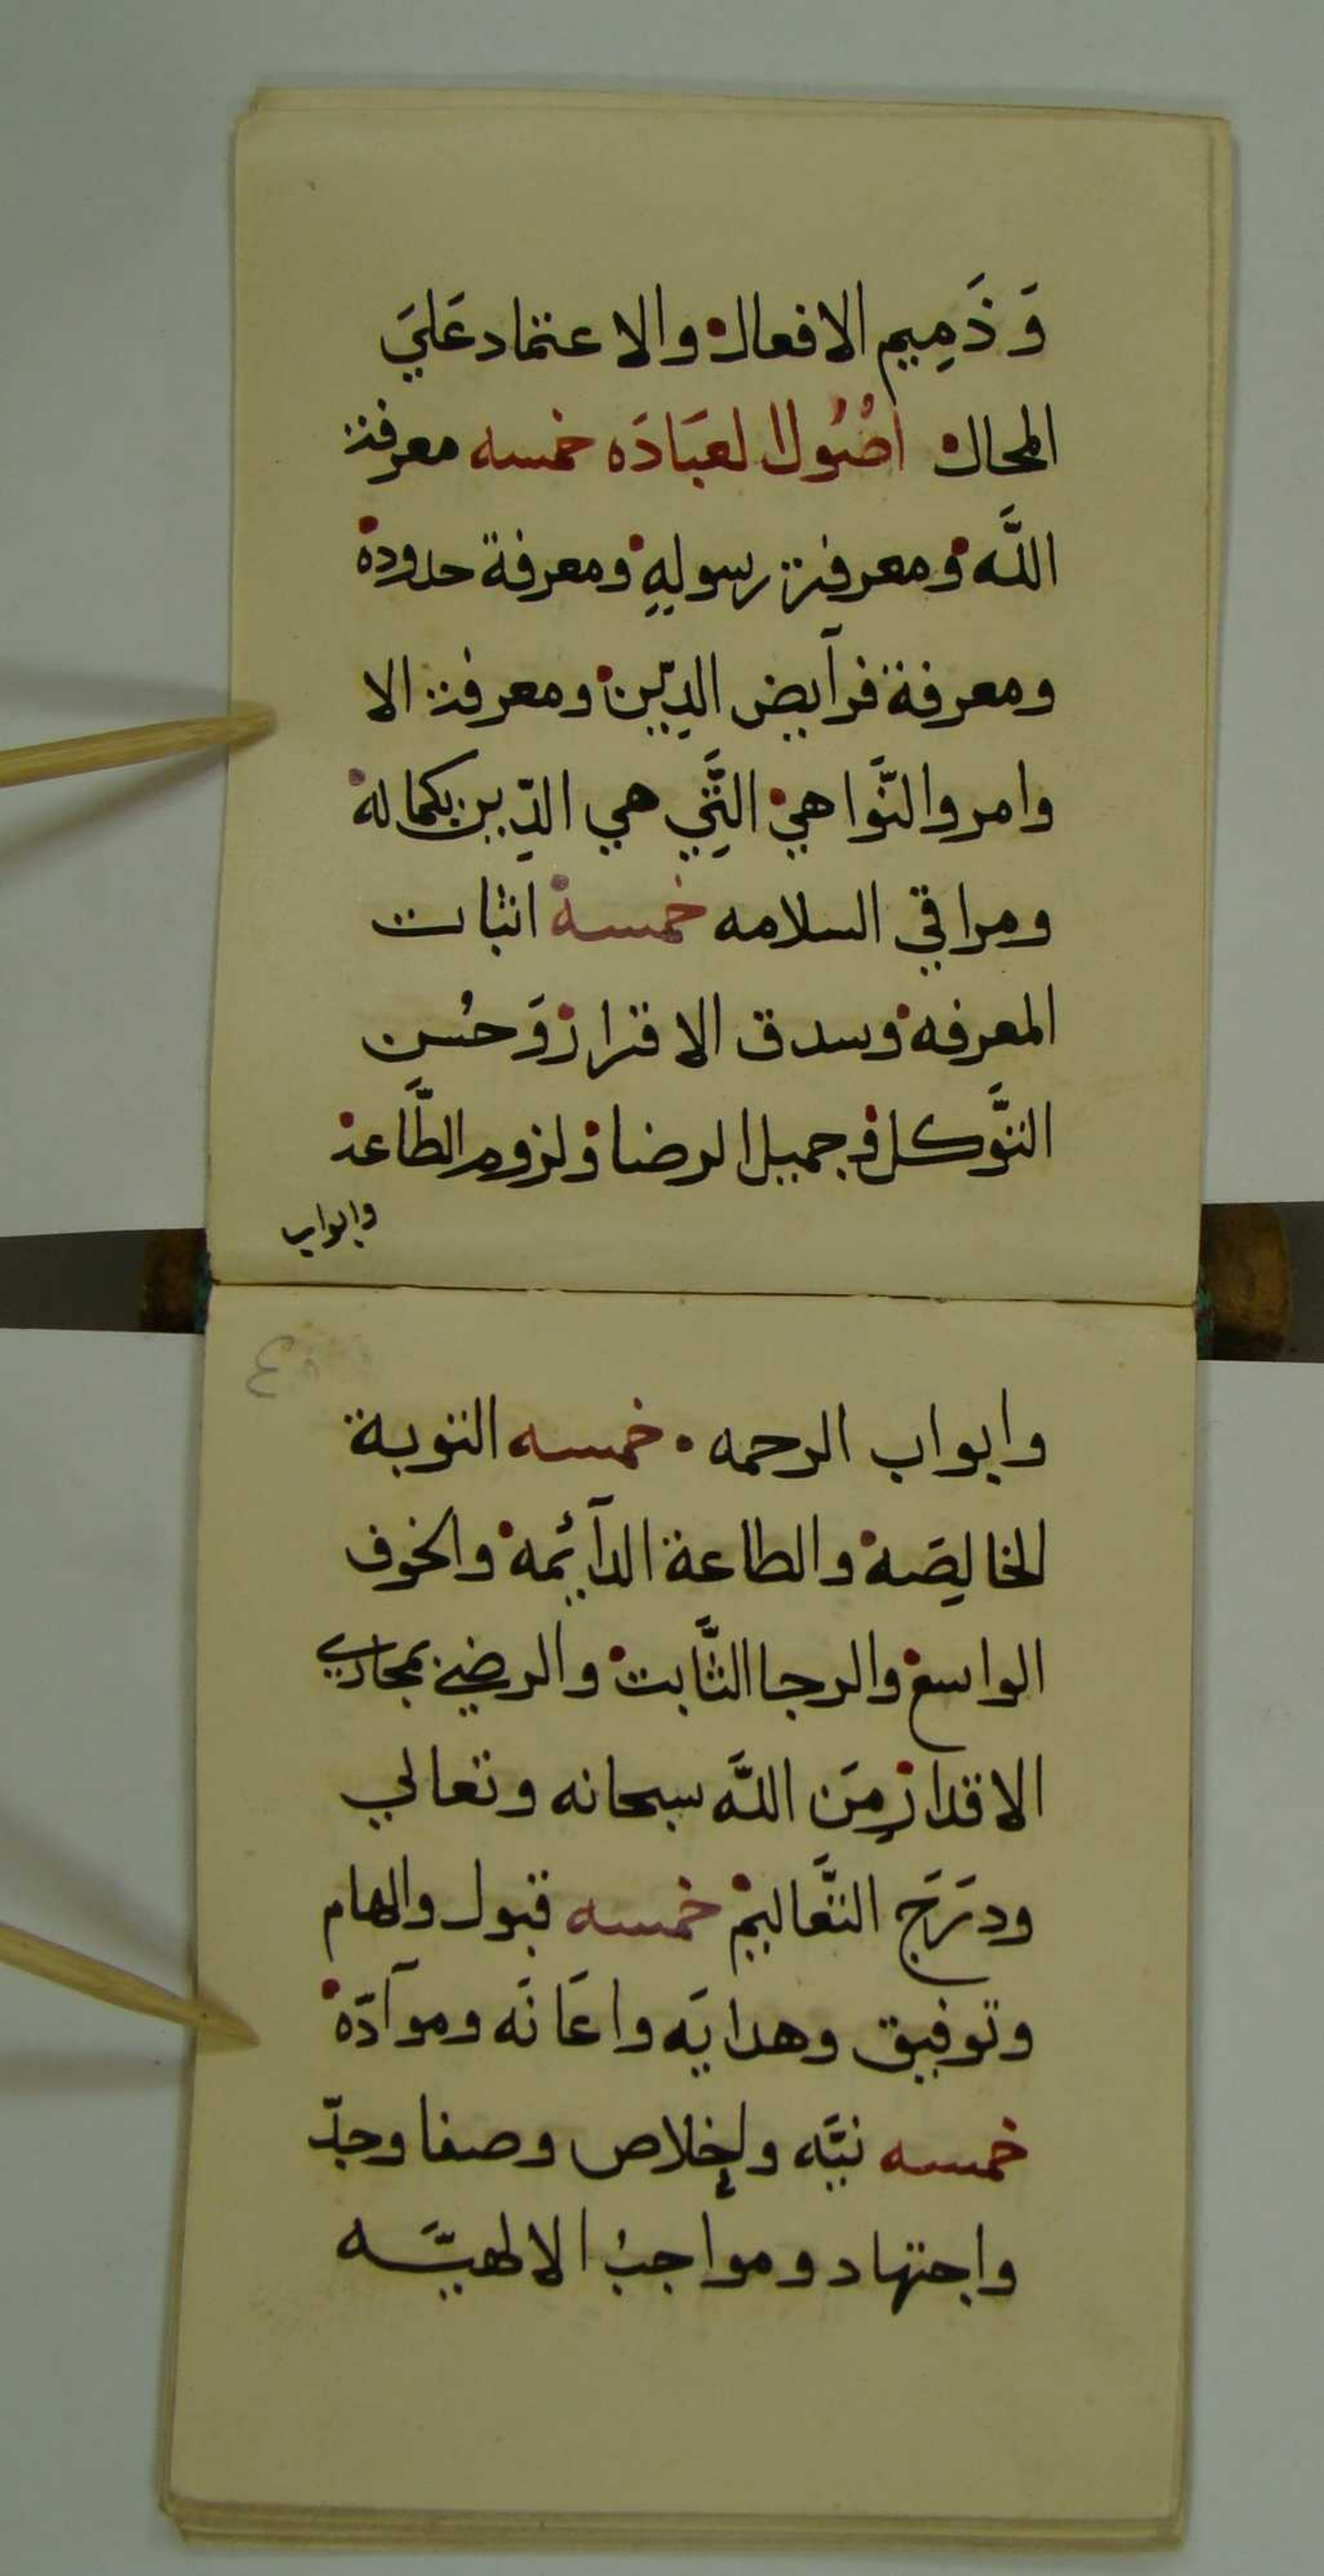 وَ ذَمِيم الافعال والاعتماد عَليَ
المحال اصُول العبَادَه خمسه معرفة
اللَّه ومعرفة رسولهِ ومعرفة حدوده
ومعرفة فرآيض الدِيّن ومعرفة الا
وامر والنَّواهي التَّيِ هي الدِّين بكماله
ومراقي السلامه خمسه اثبات
المعرفه وسدق الاقرار وَ حُسن
التَّوكل و جميل الرضا و لزوم الطَّاعة
وابواب
٤
وابواب الرحمه خمسه التوبة
الخالِصَه والطاعة الدآئِمه والخوف
الواسع والرجا الثَّابت والرضي بمجاري
الاقدار مِنَ اللَّه سبحانه وتعالي
ودَرَج التَّعاليم خمسه قبول والهام
وتوفيق وهدايَه واعَانَه وموآدّه
خمسه نيَّه وإخلاص وصفا وجدّ
واجتهاد ومواجبُ الالهيَّه